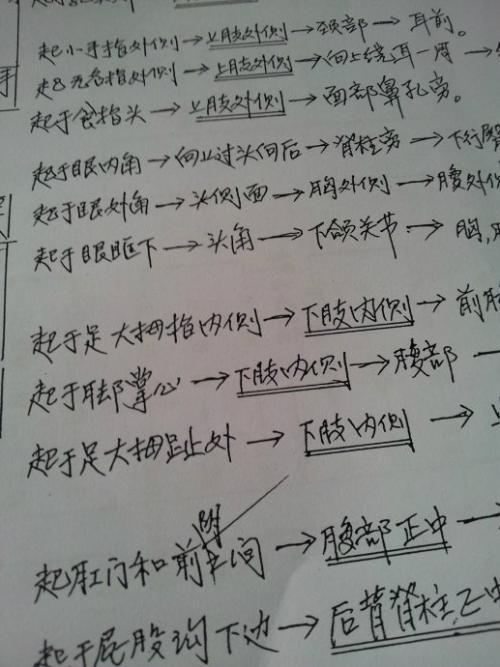 起小手指外侧→上肢外侧→颈部→耳前。
起无名指外侧→上肢外侧→向上绕耳一周→
起于食指头→上肢外侧→面部鼻孔旁。
起于眼内角→向上过头向后→脊柱旁→下行臀
起于眼外角→头侧面→胸外侧→腹外侧
起于眼眶下→头角→下颌关节→胸,
起于足大拇指内侧→下肢内侧→前
起于脚掌心→下肢内侧→腹部
起于足大拇趾外→下肢内侧→
阴
起肛门和前中间→腹部正中→
起于屁股沟下边→后背脊柱正中